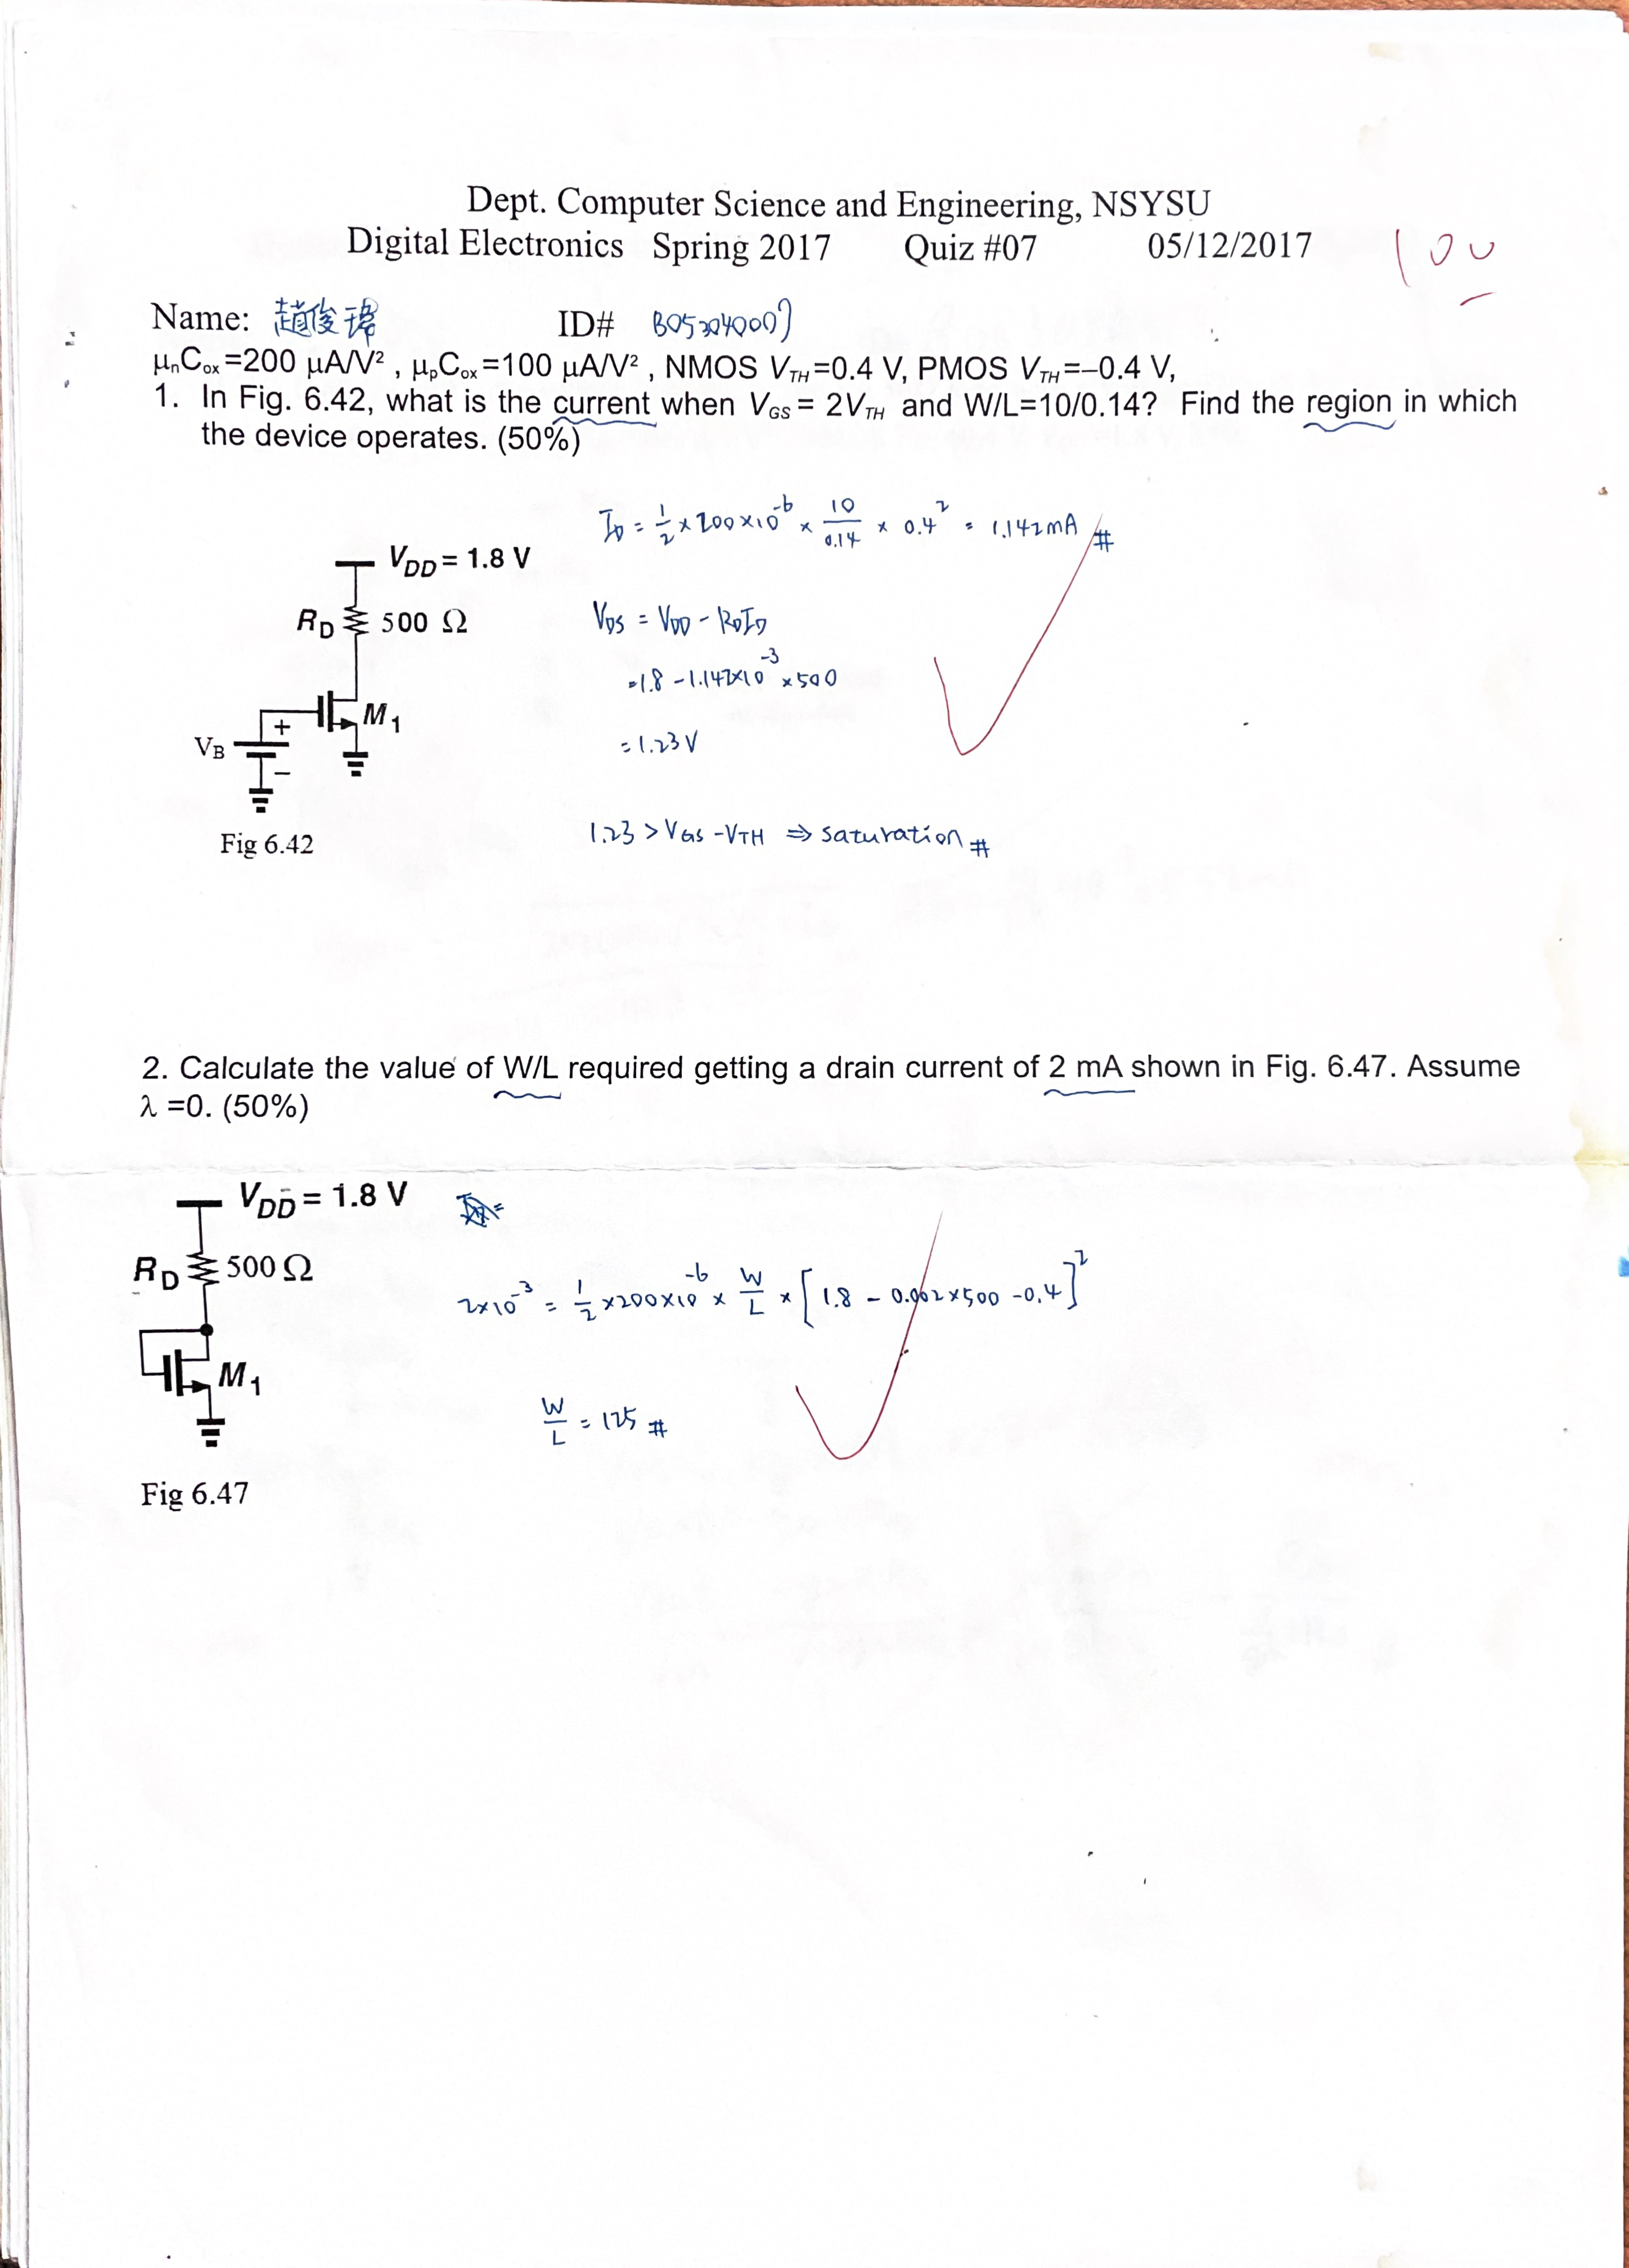 Dept. Computer Science and Engineering, NSYSU
Digital Electronics Spring 2017 Quiz #07 05/12/2017
100
Name: 趙俊瑋 ID#
μnCox=200 μA/V², μpCox=100 μA/V², NMOS VTH=0.4 V, PMOS VTH=−0.4 V,
1. In Fig. 6.42, what is the current when VGS = 2VTH and W/L=10/0.14? Find the region in which
the device operates. (50%)
ID = 1/2 × 200×10^-6 × 10/0.14 × 0.4² = 1.142mA #
VDD = 1.8 V
RD 500 Ω
VDS = VDD - RDID
=1.8 - 1.142×10^-3 × 500
M1
+
VB
−
= 1.23V
1.23 > VGS - VTH ⇒ saturation #
Fig 6.42
2. Calculate the value of W/L required getting a drain current of 2 mA shown in Fig. 6.47. Assume
λ =0. (50%)
VDD = 1.8 V
RD 500 Ω
2×10^-3 = 1/2 ×200×10^-6 × W/L × [1.8 - 0.002×500 -0.4]²
M1
W/L = 125 #
Fig 6.47